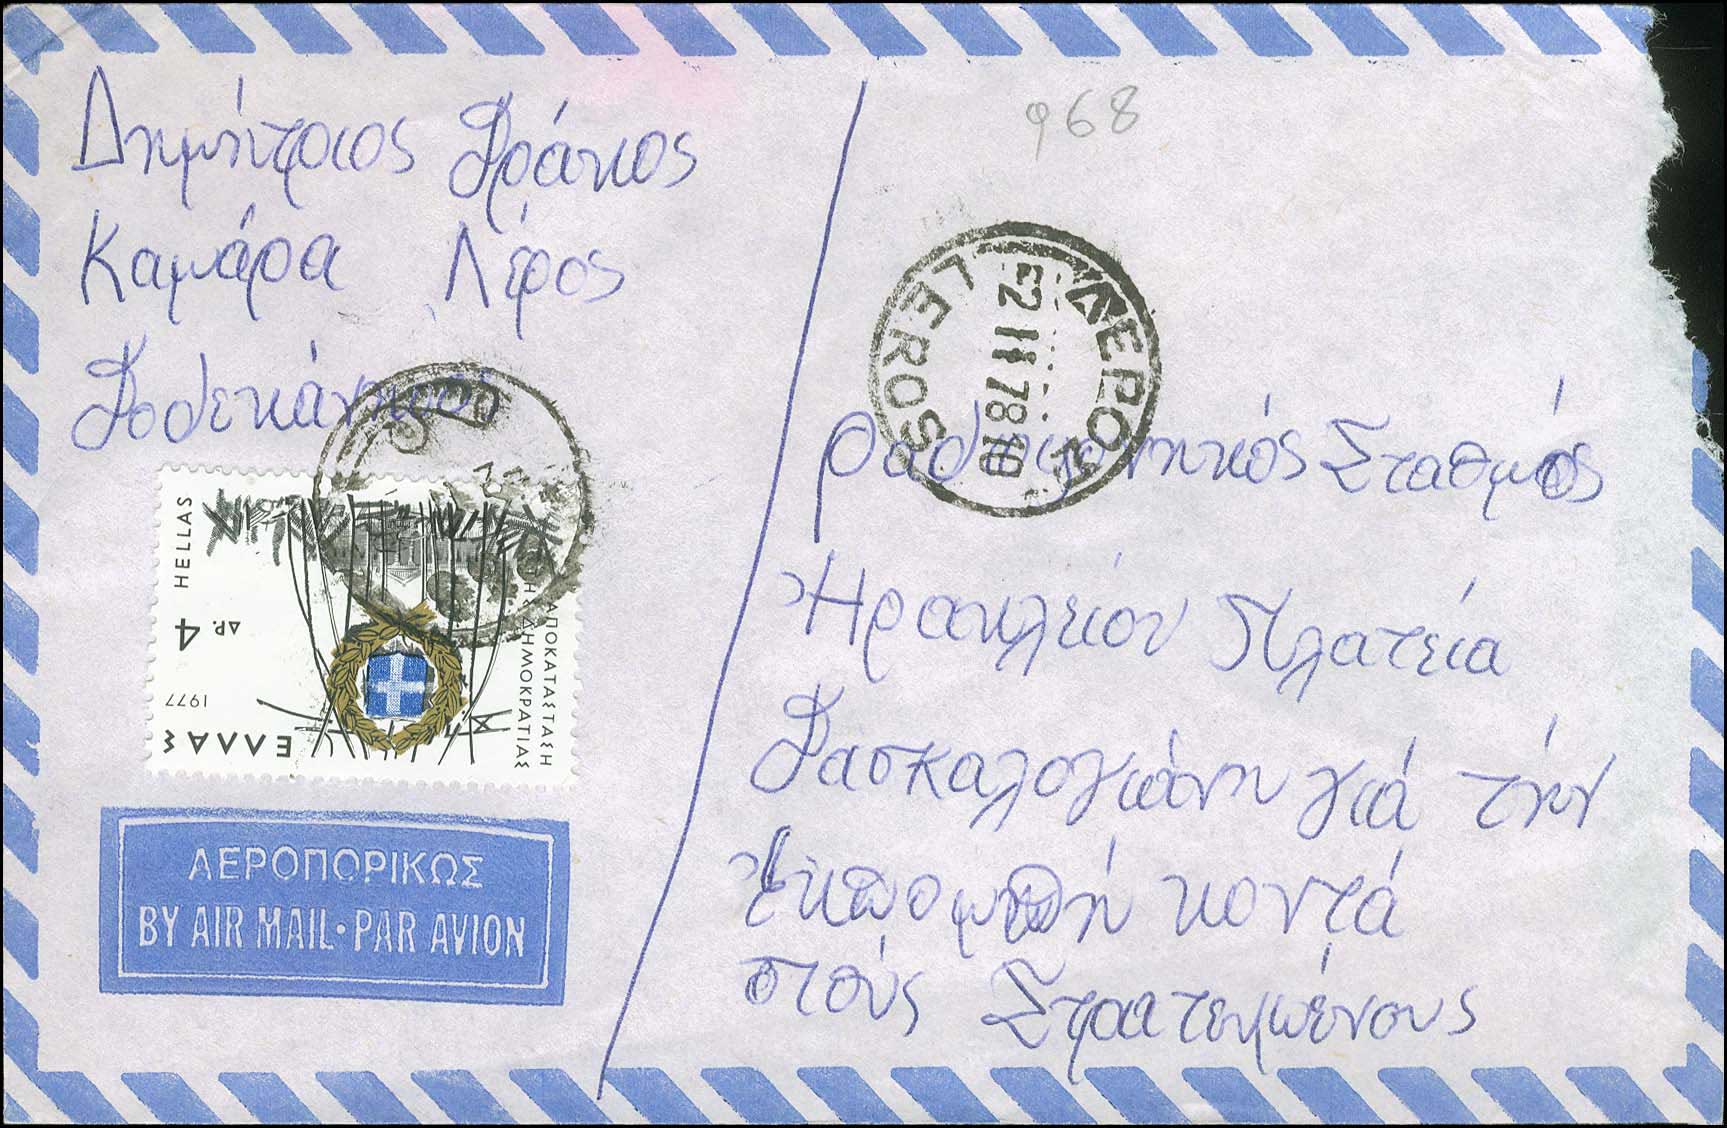 Δημήτριος Δράκος
Καμάρα Λέρος
Δοδεκάνησου
HELLAS
ΔΡ. 4
1977
ΕΛΛΑΣ
ΑΠΟΚΑΤΑΣΤΑΣΗ
ΤΗΣ ΔΗΜΟΚΡΑΤΙΑΣ
ΑΕΡΟΠΟΡΙΚΩΣ
BY AIR MAIL·PAR AVION
φ68
ΛΕΡΟΣ
-2 II 78 10
LEROS
Ραδιοφονηκός Σταθμός
Ηρακλείου Πλατεία
Δασκαλογιάνη γιά τήν
Εκπομπή κοντά
στούς Στρατευμένους